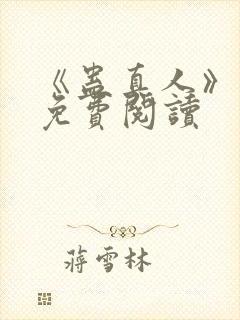 《蛊真人》
免費閱讀
蔣雪林